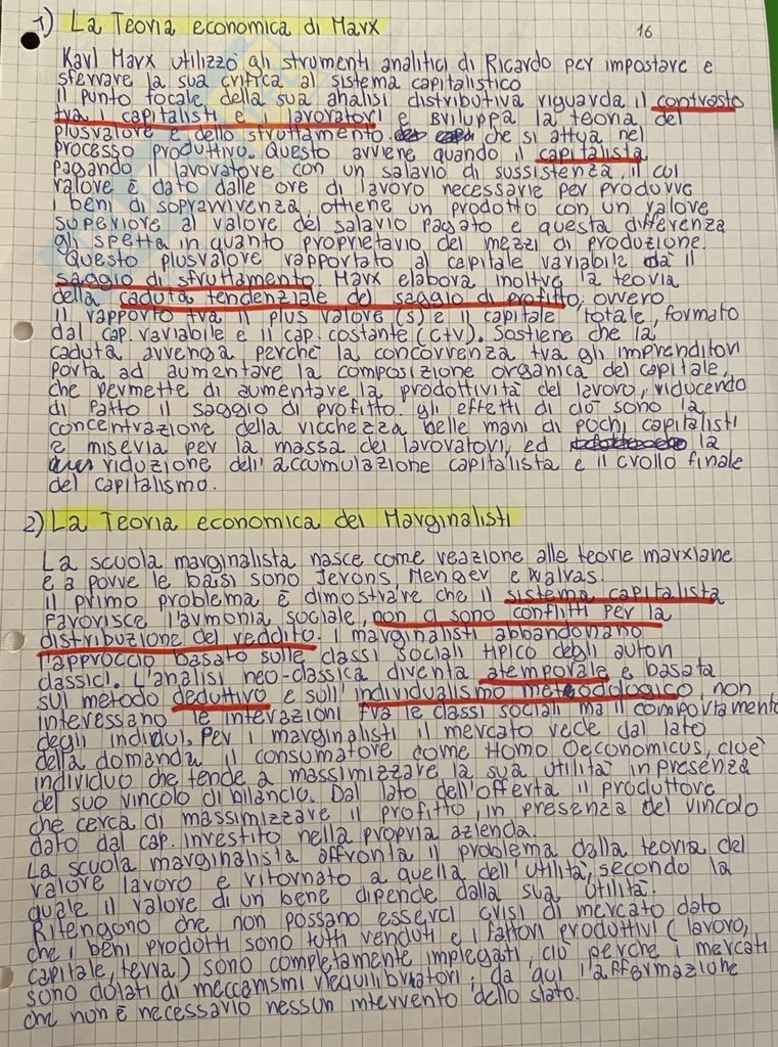 1) La Teoria economica di Marx
16
Karl Marx utilizzò gli strumenti analitici di Ricardo per impostare e
sferrare la sua critica al sistema capitalistico
il punto focale della sua analisi distributiva riguarda il contrasto
tra capitalisti e lavoratori e sviluppa la teoria del
plusvalore e dello sfruttamento che si attua nel
processo produttivo. Questo avviene quando il capitalista
pagando il lavoratore con un salario di sussistenza, il cui
valore è dato dalle ore di lavoro necessarie per produrre
i beni di sopravvivenza, ottiene un prodotto con un valore
superiore al valore del salario pagato e questa differenza
gli spetta in quanto proprietario dei mezzi di produzione.
Questo plusvalore rapportato al capitale variabile dà il
saggio di sfruttamento. Marx elabora inoltre la teoria
della caduta tendenziale del saggio di profitto, ovvero
il rapporto tra il plus valore (s) e il capitale totale, formato
dal cap. variabile e il cap. costante (c+v). Sostiene che la
caduta avvenga perche la concorrenza tra gli imprenditori
porta ad aumentare la composizione organica del capitale,
che permette di aumentare la produttività del lavoro, riducendo
di fatto il saggio di profitto. gli effetti di ciò sono la
concentrazione della ricchezza nelle mani di pochi capitalisti
e miseria per la massa dei lavoratori, ed la
riduzione dell'accumulazione capitalista e il crollo finale
del capitalismo.
2) La Teoria economica dei Marginalisti
La scuola marginalista nasce come reazione alle teorie marxiane
e a porre le basi sono Jevons, Menger e Walras.
il primo problema è dimostrare che il sistema capitalista
favorisce l'armonia sociale, non ci sono conflitti per la
distribuzione del reddito. i marginalisti abbandonano
l'approccio basato sulle classi sociali tipico degli autori
classici. L'analisi neo-classica diventa atemporale e basata
sul metodo deduttivo e sull'individualismo metodologico, non
interessano le interazioni tra le classi sociali ma il comportamento
degli individui. Per i marginalisti il mercato vede dal lato
della domanda il consumatore come Homo Oeconomicus, cioè
individuo che tende a massimizzare la sua utilità in presenza
del suo vincolo di bilancio. Dal lato dell'offerta il produttore
che cerca di massimizzare il profitto, in presenza del vincolo
dato dal cap. investito nella propria azienda.
La scuola marginalista affronta il problema dalla teoria del
valore lavoro e ritornato a quella dell'utilità, secondo la
quale il valore di un bene dipende dalla sua utilità.
Ritengono che non possano esserci crisi di mercato dato
che i beni prodotti sono tutti venduti e i fattori produttivi (lavoro,
capitale, terra) sono completamente impiegati, ciò perche i mercati
sono dotati di meccanismi riequilibratori; da qui l'affermazione
che non è necessario nessun intervento dello stato.